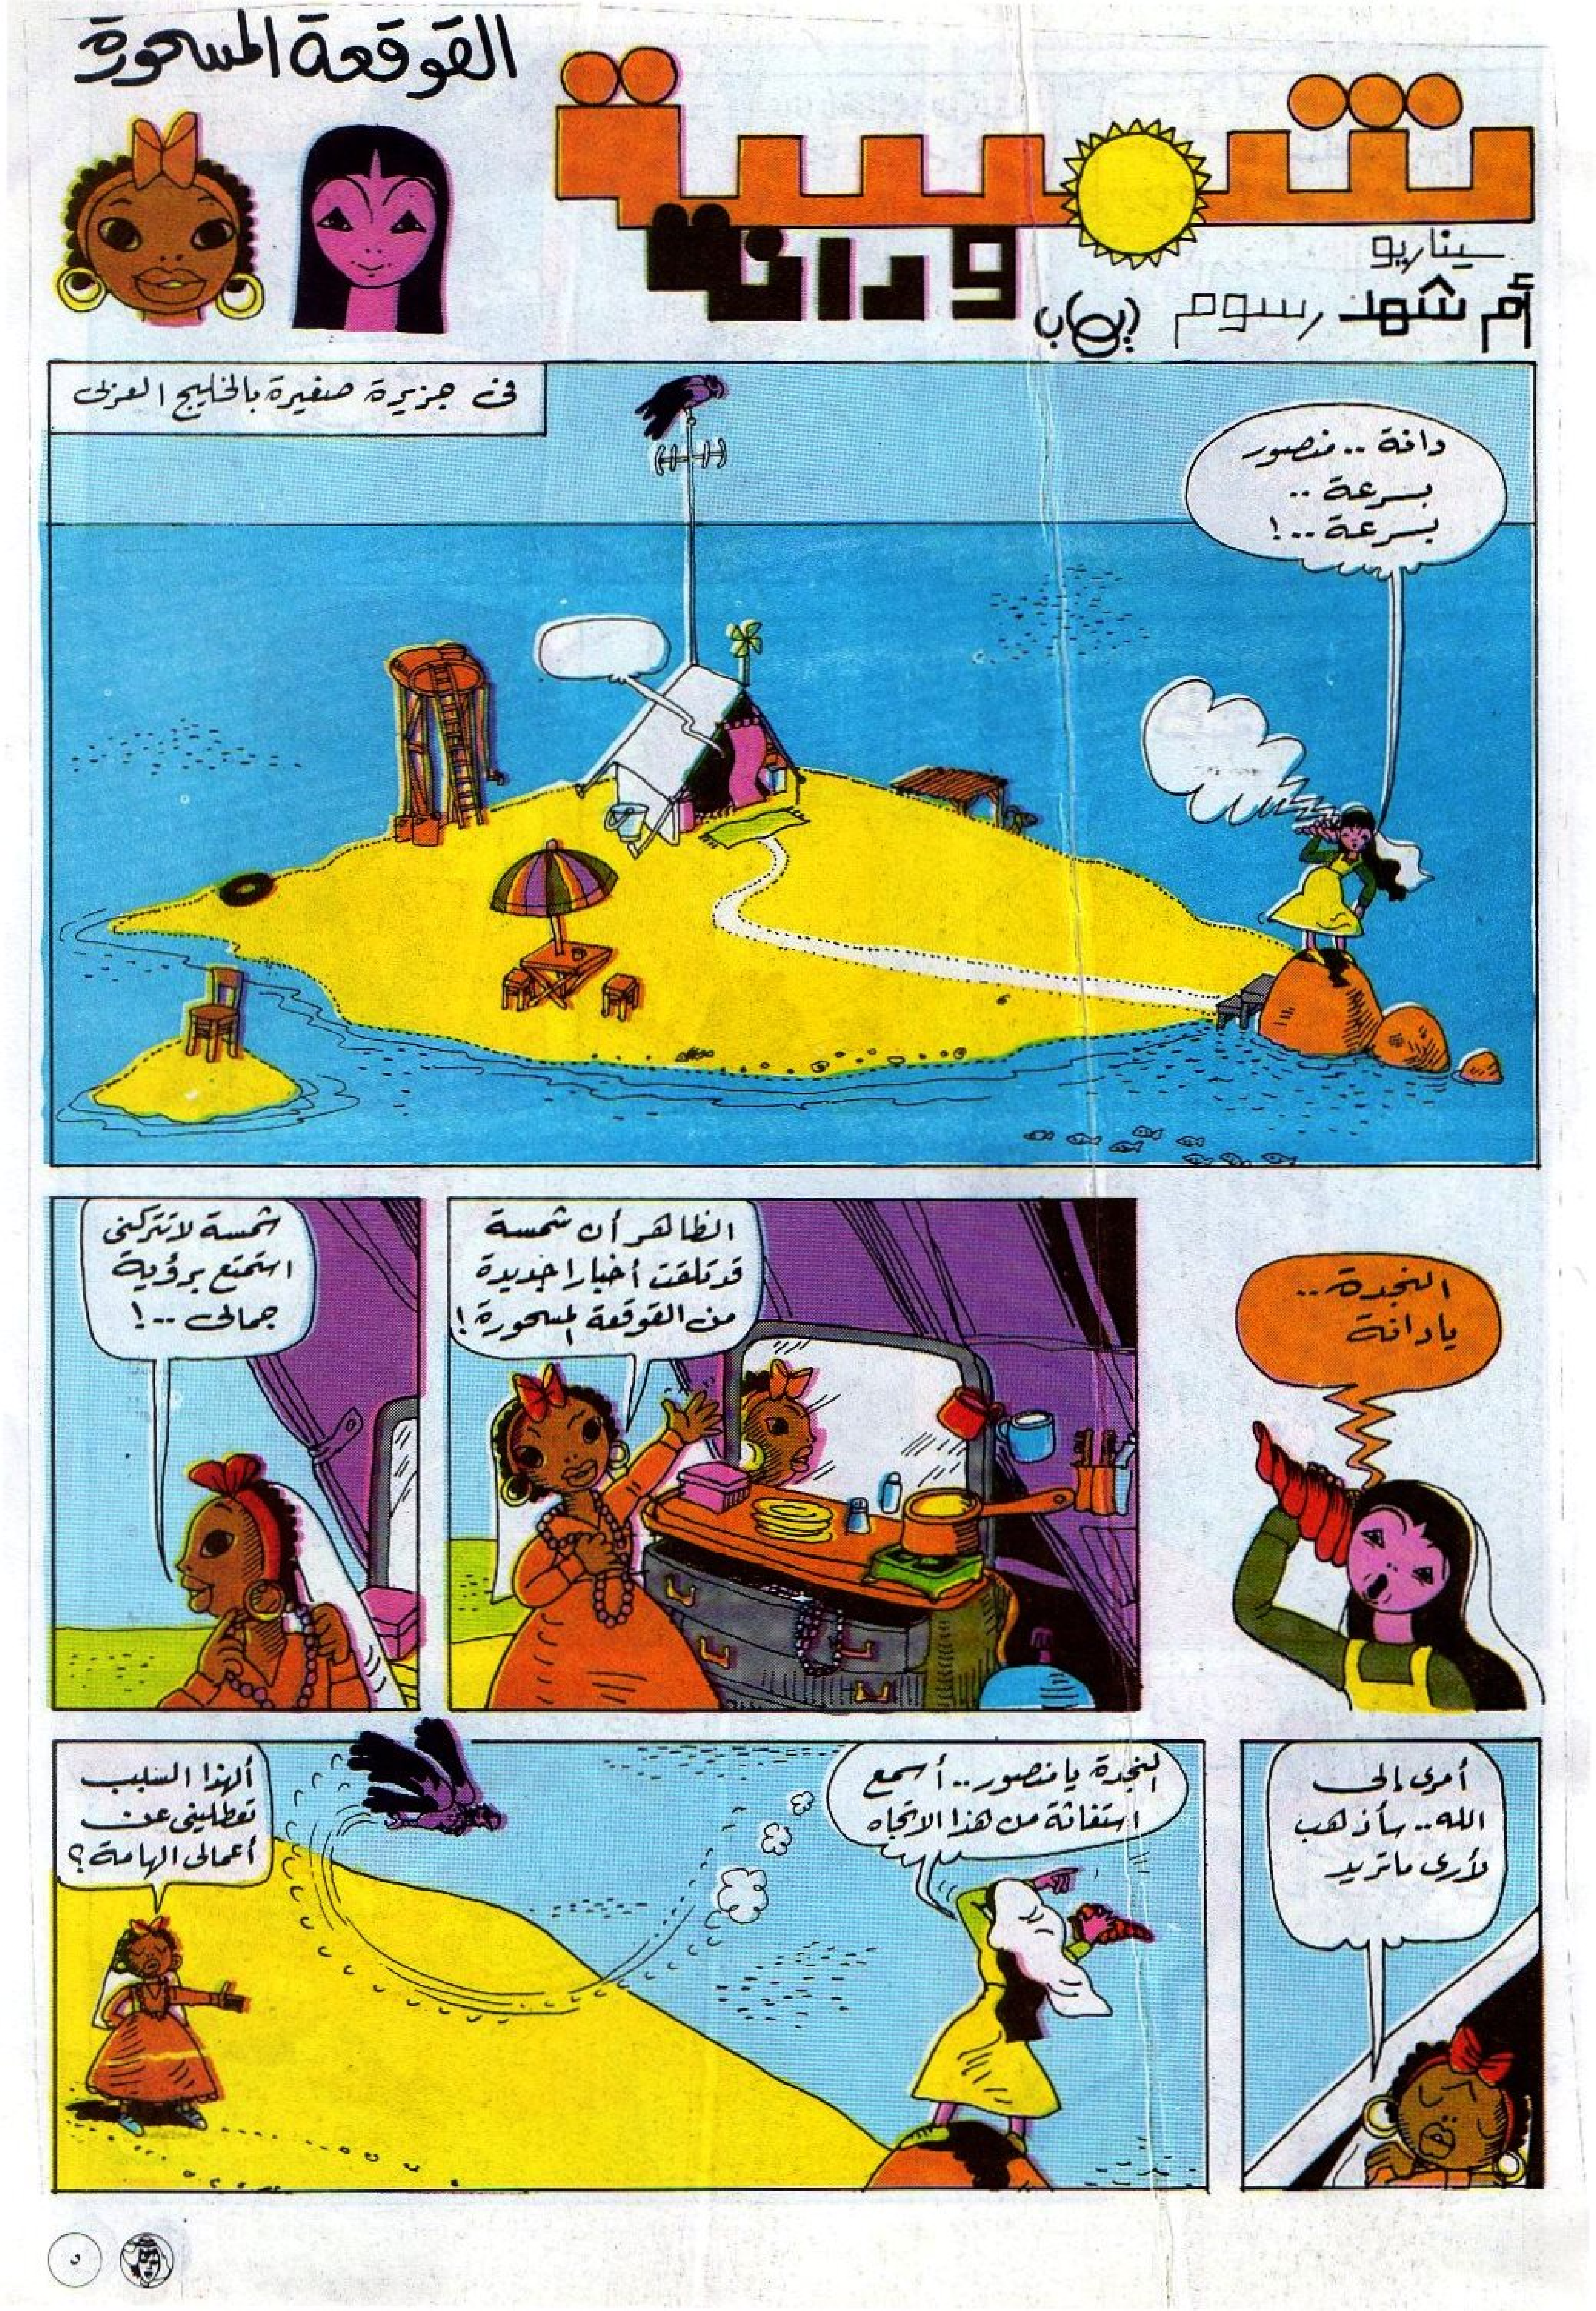 القوقعة المسحورة
شمسة
ودانة
سيناريو
أم شهد رسوم إيهاب
فى جزيرة صغيرة بالخليج العربى
دانة .. منصور
بسرعة ..
بسرعة ..!
النجدة ..
يا دانة
الظاهر أن شمسة
قد تلقت أخبارا جديدة
من القوقعة المسحورة !
شمسة لا تتركنى
استمتع برؤية
جمالى ..!
أمرى إلى
الله .. سأذهب
لأرى ما تريد
النجدة يا منصور .. أسمع
استغاثة من هذا الاتجاه
ألهذا السبب
تعطلينى عن
أعمالى الهامة ؟